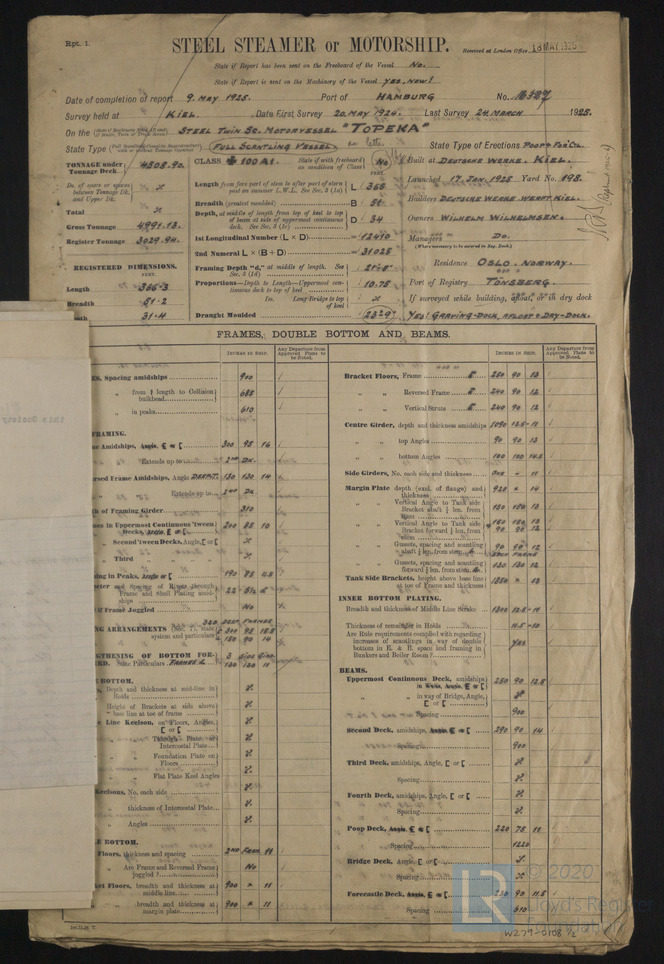 Rpt. 1.
STEEL STEAMER or MOTORSHIP.
Received at London Office 18 MAY 1925
State if Report has been sent on the Freeboard of the Vessel No.
State if Report is sent on the Machinery of the Vessel YES. NEW!
Date of completion of report 9. MAY 1925. Port of HAMBURG No.
Survey held at KIEL. Date First Survey 20. MAY 1924. Last Survey 24. MARCH 1925.
On the STEEL TWIN SC. MOTORVESSEL "TOPEKA"
State Type (FULL SCANTLING VESSEL) State Type of Erections POOP & FOR'CLE.
TONNAGE under Tonnage Deck 4508.90.
CLASS 100A1. State if with freeboard as condition of Class No
Built at DEUTSCHE WERKE. KIEL.
Launched 17. JAN. 1925 Yard No. 198.
Total x
Gross Tonnage 4991.13.
Register Tonnage 3029.94.
Length from fore part of stem to after part of stern post on summer L.W.L. See Sec. 3 (1a) L 365
Breadth (greatest moulded) B 51
Depth, at middle of length from top of keel to top of beam at side of uppermost continuous deck. See Sec. 3 (1c) D 34
1st Longitudinal Number (L × D) = 12410
2nd Numeral L × (B + D) = 31025
Framing Depth "d," at middle of length. See Sec. 3 (1d)
Proportions—Depth to Length—Uppermost continuous deck to top of keel 10.75
Do. Long Bridge to top of keel x
Draught Moulded
Builders DEUTSCHE WERKE. WERFT KIEL.
Owners WILHELM WILHELMSEN.
Managers Do.
(Where necessary to be entered in Reg. Book.)
Residence OSLO. NORWAY.
Port of Registry TÖNSBERG.
If surveyed while building, afloat, or in dry dock
YES! GRAVING-DOCK, AFLOAT & DRY-DOCK.
REGISTERED DIMENSIONS.
FEET.
Length 366.3
Breadth 51.2
31.4
FRAMES, DOUBLE BOTTOM AND BEAMS.
INCHES IN SHIP.
Any Departure from Approved Plans to be Noted.
INCHES IN SHIP.
Any Departure from Approved Plans to be Noted.
ES, Spacing amidships 900
" from ⅕ length to Collision bulkhead 685
" in peaks 610
FRAMING.
me Amidships, Angle, 300 95 16
Extends up to 2ND DK.
ersed Frame Amidships, Angle 130 130 14
Extends up to 2ND DK
th of Framing Girder 310
mes in Uppermost Continuous 'tween Decks, Angle, 200 85 10
" Second 'tween Decks, Angle, x
" Third " " x
ing in Peaks, Angle or 190 85
eter and Spacing of Rivets through Frame and Shell Plating amidships 22
if Frame Joggled No
320 DEEP FRAMES
NG ARRANGEMENTS (Sec. 7), state system and particulars
GTHENING OF BOTTOM FORWARD. State Particulars
130 130 11
E BOTTOM.
Depth and thickness at mid-line in Holds
Height of Brackets at side above base line at toe of frame
e Line Keelson, on Floors, Angles, [ or [
" Through Plate or Intercostal Plate
" Foundation Plate on Floors
" Flat Plate Keel Angles
Keelsons, No. each side
thickness of Intercostal Plate
Angles
LE BOTTOM.
Floors, thickness and spacing
Are Frame and Reversed Frame joggled? No
ket Floors, breadth and thickness at middle line 900 × 11
" breadth and thickness at margin plate 900 × 11
Bracket Floors, Frame 250 90 12
" " Reversed Frame 240 90 12
" " Vertical Struts 240 90 12
Centre Girder, depth and thickness amidships 1090 12.5-11
" top Angles 90 90 12
" bottom Angles 100 100 14.5
Side Girders, No. each side and thickness ONE × 11
Margin Plate depth (excl. of flange) and thickness 925 × 14
Vertical Angle to Tank side Bracket abaft ⅕ len. from stem 130 130 12
Vertical Angle to Tank side Bracket forward ⅕ len. from stem
Gussets, spacing and scantling abaft ⅕ len. from stem
Gussets, spacing and scantling forward ⅕ len. from stem 130 130 12
Tank Side Brackets, height above base line at toe of Frame and thickness 1350 × 12
INNER BOTTOM PLATING.
Breadth and thickness of Middle Line Strake 1300 12.5-11
Thickness of remainder in Holds 11.5-10
Are Rule requirements complied with regarding increases of scantlings in way of double bottom in E. & B. space and framing in Bunkers and Boiler Room? YES
BEAMS.
Uppermost Continuous Deck, amidships 250 90 12.5
" in way of Bridge, Angle, [ or [
Spacing 900
Second Deck, amidships, Angle 290 90 14
Spacing 900
Third Deck, amidships, Angle, [ or [
Spacing
Fourth Deck, amidships, Angle, [ or [
Spacing
Poop Deck, Angle 220 75 11
Spacing 1220
Bridge Deck, Angle, [ or [
Spacing
Forecastle Deck, Angle 230 90 11.5
Spacing 610
© 2020
Lloyd's Register
Foundation
W279-0108 ½